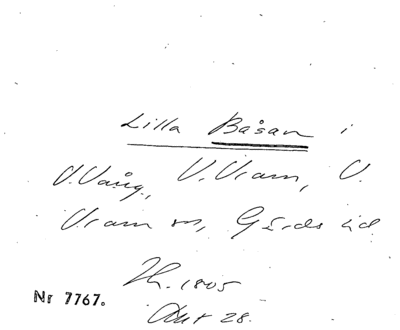 Lilla Båsan i
V. Vång, V. Vram, V.
Vram sn, Gärds hd
Th. 1805
Akt 28.
Nr 7767.